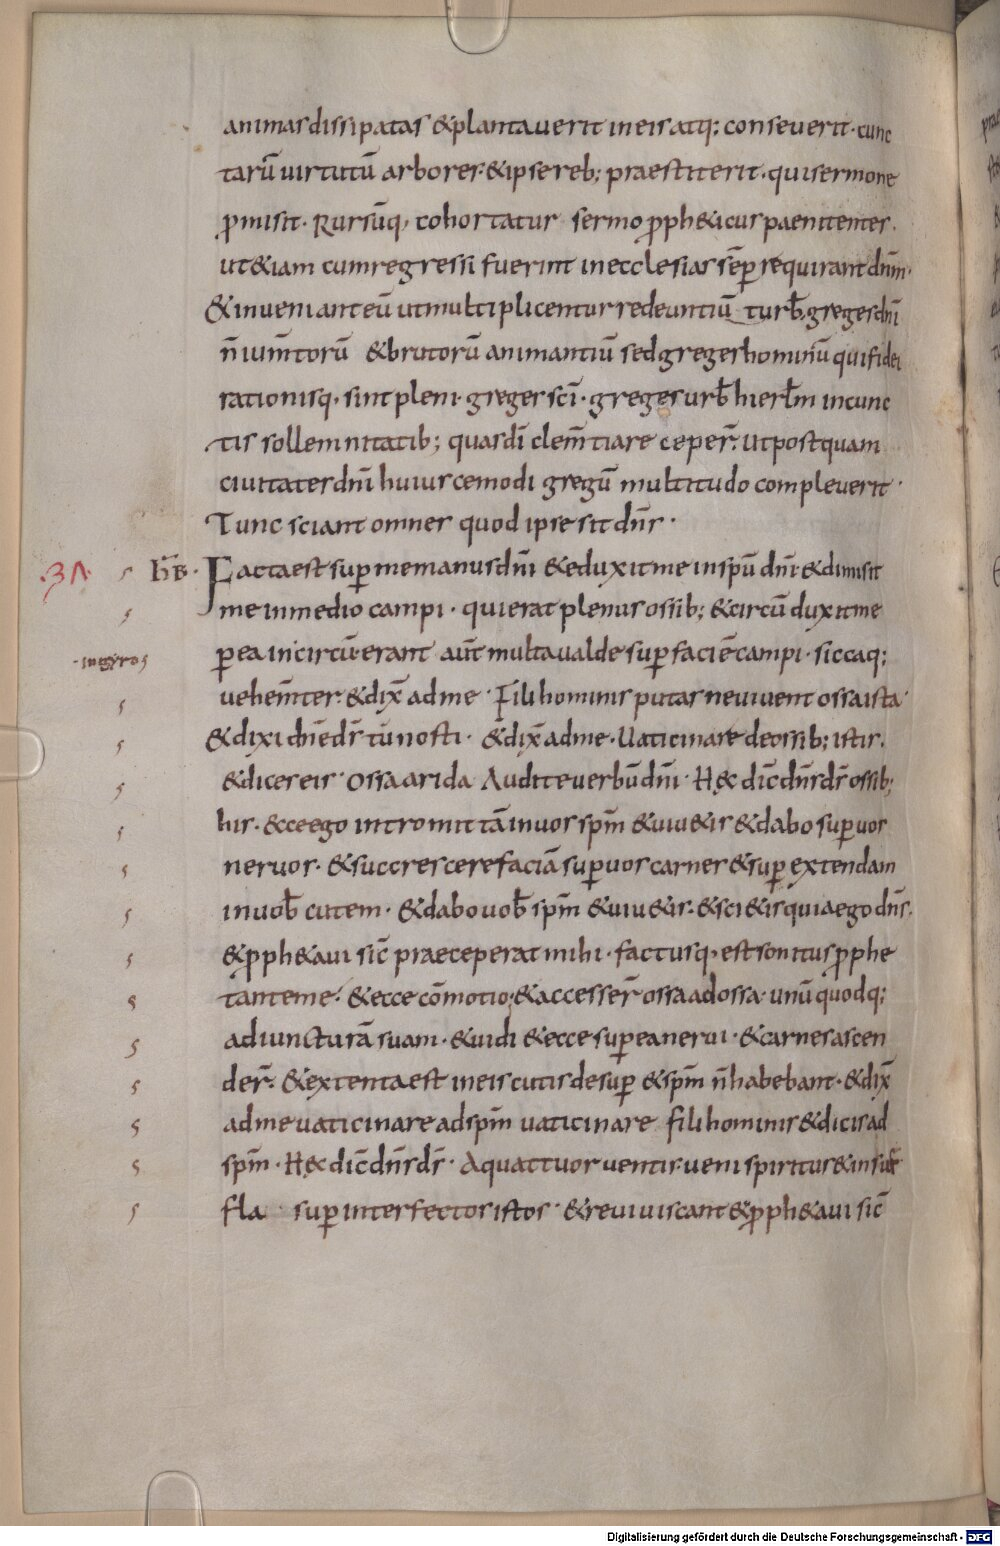 animas dissipatas &plantauerit in eis atq; conseuerit · cunc
tarū uirtutū arbores · &ipse reb; praestiterit · qui sermone
p̱misit · Rursūq, cohortatur sermo p̱ph&icus paenitentes ·
ut &iam cum regressi fuerint in ecclesias sēp requirant dn̄m ·
&inueniant eū ut multiplicentur redeuntiū turb̄, greges dn̄i
n̄ ium̄torū &brutorū animantiū sed greges hominū qui fidei
rationisq · sint pleni · greges sc̄i · greges urb̄ hierl̄m in cunc
tis sollemnitatib; quas dī clem̄tia re ceper̄ · ut postquam
ciuitates dn̄i huiuscemodi gregū multitudo compleuerit ·
Tunc sciant omnes quod ipse sit dn̄s ·
·3Λ· h̄B · Facta est sup me manus dn̄i &eduxit me in spū dn̄i &dimisit
me in medio campi · qui erat plenus ossib; &circū duxit me
·in gyros p ea in circū · erant aūt multa ualde sup faciē campi · siccaq;
uehem̄ter · &dix̄ ad me · Fili hominis putas ne uiuent ossa ista ·
&dixi dn̄e ds̄ tū nosti · &dix̄ ad me · Uaticinare de ossib; istis ·
&dices eis · Ossa arida Audite uerbū dn̄i · H&c dic̄ dn̄s ds̄ ossib;
his · &cce ego intromittā in uos spm̄ &uiu&is &dabo sup uos
neruos · &succrescere faciā sup uos carnes &sup extendam
in uob̄ cutem · &dabo uob̄ spm̄ &uiu&is · &sci&is quia ego dn̄s ·
&p̱ph&aui sic̄ praeceperat mihi · factusq · est sonitus p̱phe
tante me · &ecce cōmotio; &accesser̄ ossa ad ossa · unū quodq;
ad iuncturā suam · &uidi &ecce sup ea nerui · &carnes ascen
der̄ · &extenta est in eis cutis desup &spm̄ n̄ habebant · &dix̄
ad me uaticinare ad spm̄ uaticinare fili hominis &dicis ad
spm̄ · H&c dic̄ dn̄s ds̄ · A quattuor uentis · ueni spiritus &insuf
fla sup interfectos istos · &reuiuiscant &p̱ph&aui sic̄
Digitalisierung gefördert durch die Deutsche Forschungsgemeinschaft - DFG